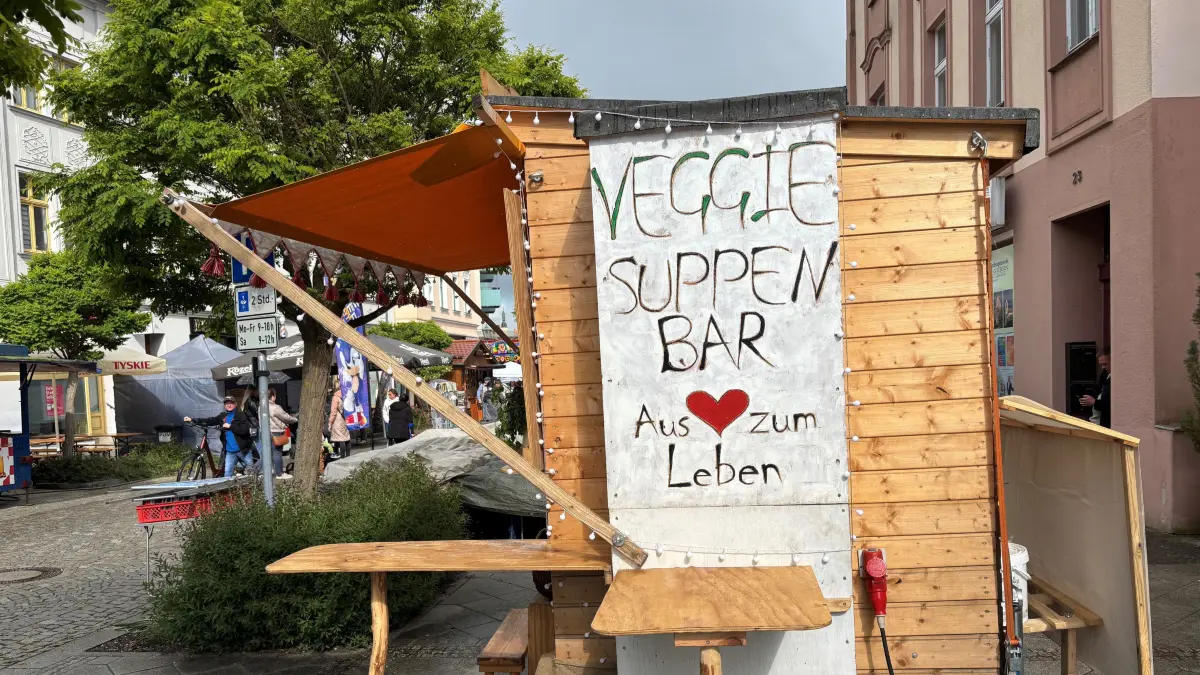 VEGGIE
SUPPEN
BAR
Aus ♥ zum
Leben
2 Std.
Mo-Fr 9-18h
Sa 9-12h
TYSKIE
Kozel
23